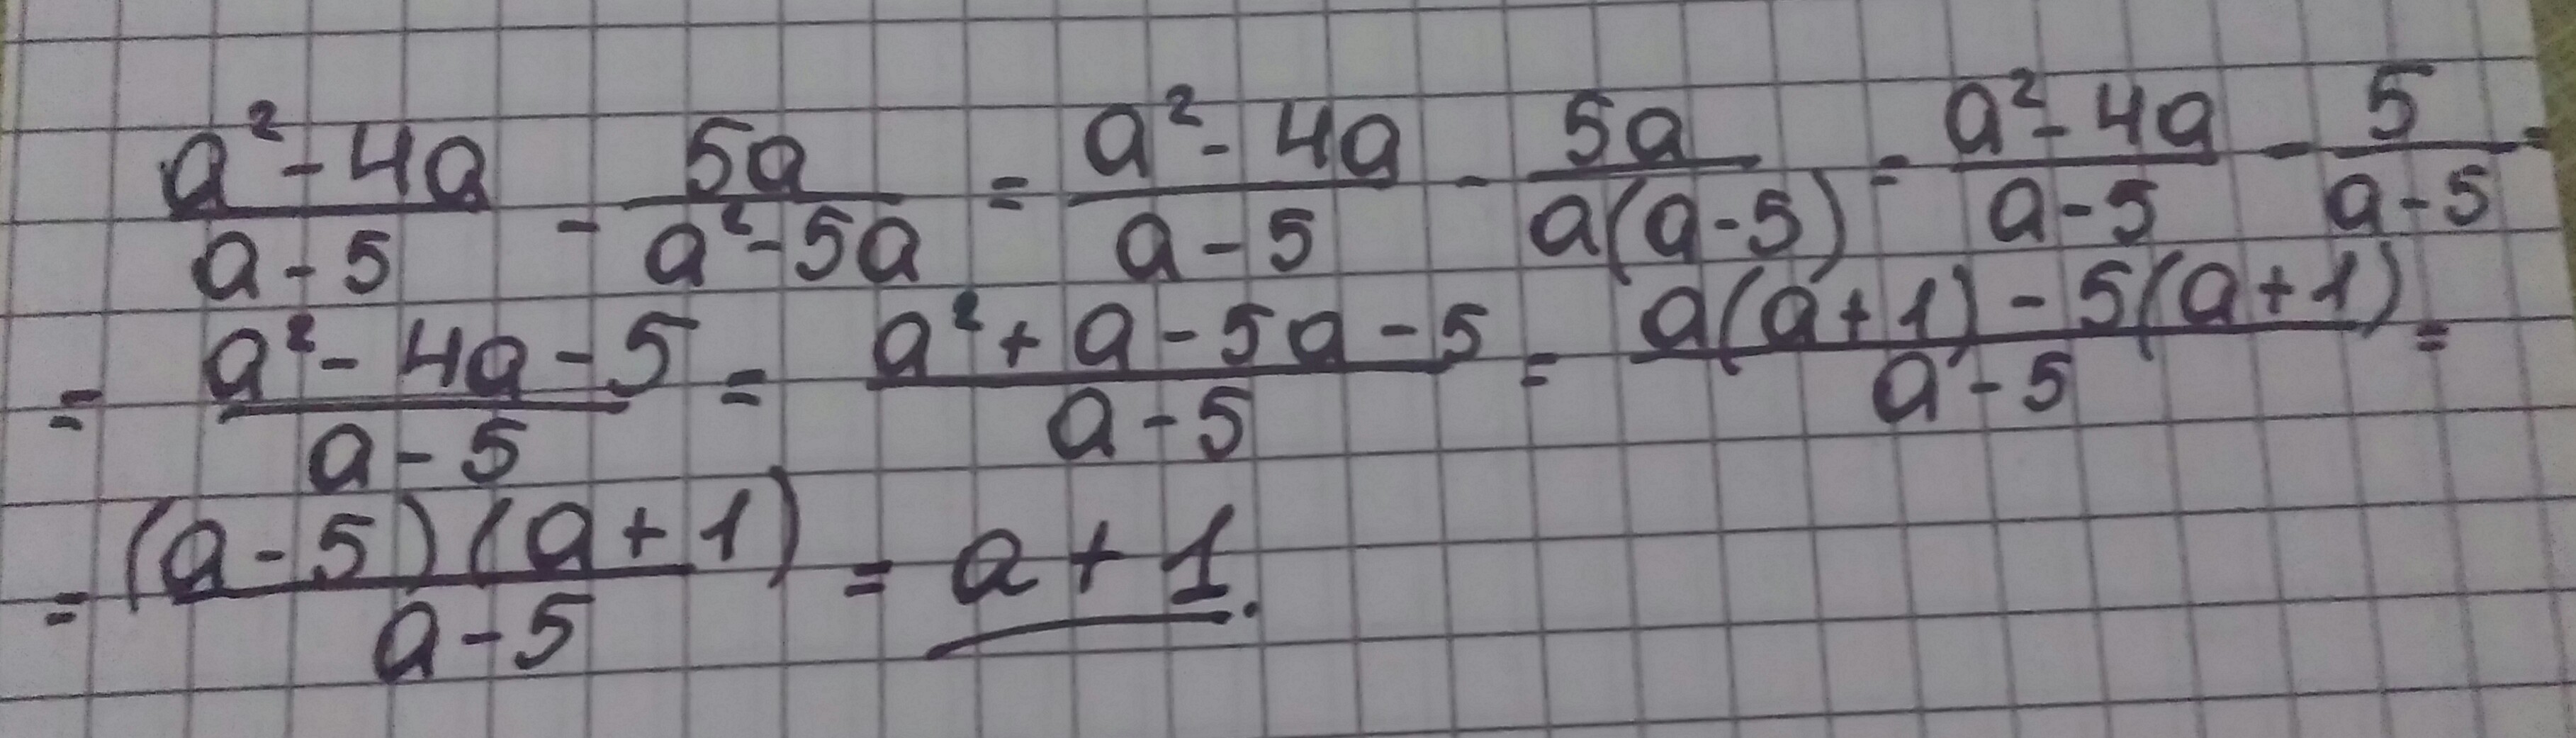 (a² - 4a)/(a - 5) - 5a/(a² - 5a) = (a² - 4a)/(a - 5) - 5a/(a(a - 5)) = (a² - 4a)/(a - 5) - 5/(a - 5) =
= (a² - 4a - 5)/(a - 5) = (a² + a - 5a - 5)/(a - 5) = (a(a + 1) - 5(a + 1))/(a - 5) =
= ((a - 5)(a + 1))/(a - 5) = a + 1.